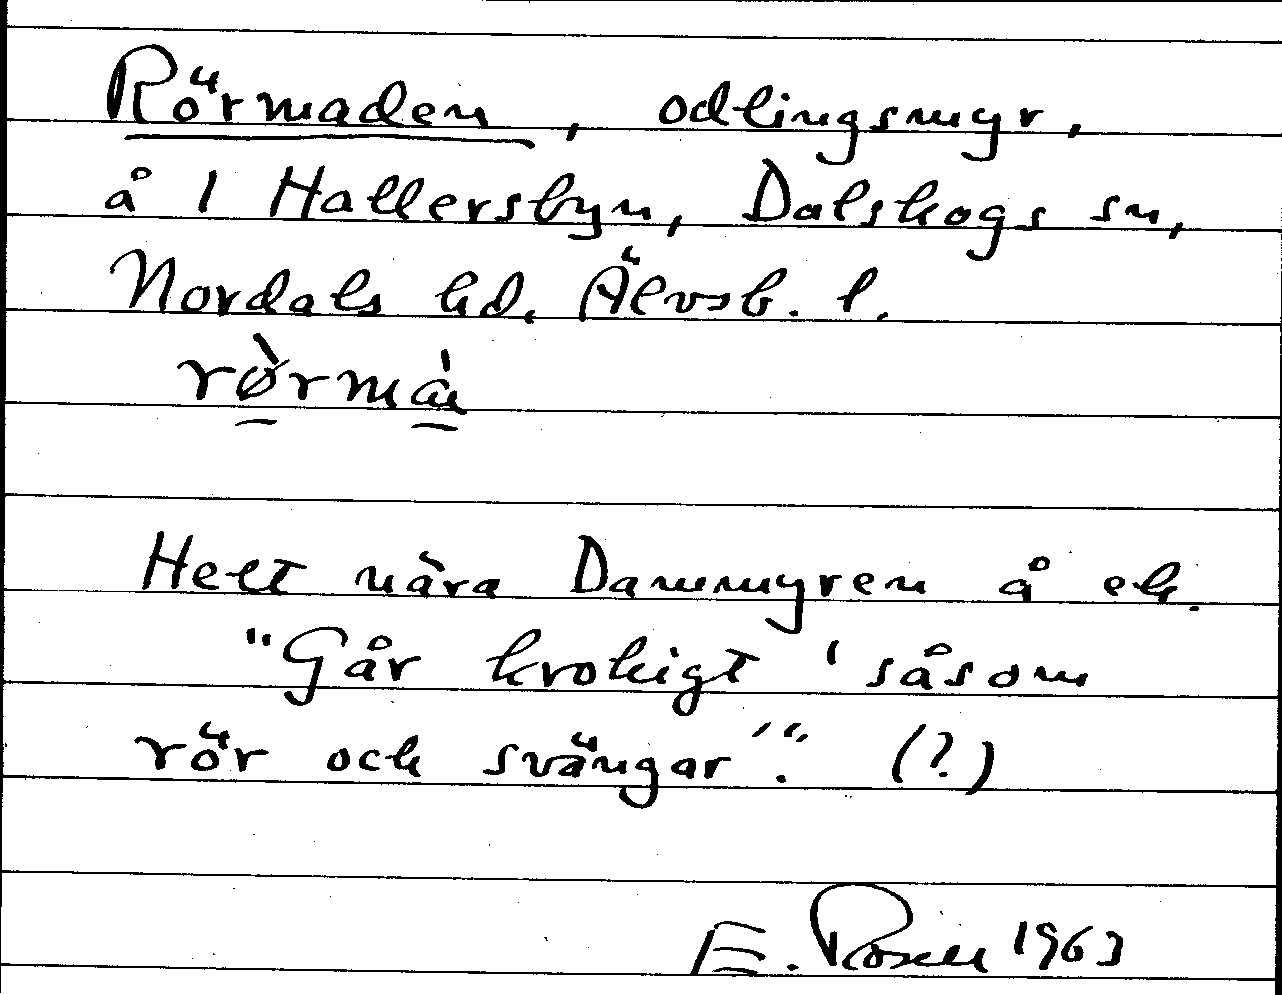 Rörmaden, odlingsmyr,
å 1 Hallersbyn, Dalskogs sn,
Nordals hd. Älvsb. l.
rø̀rmà
Helt nära Dammyren å ek.
"Går krokigt 'såsom
rör och svängar'". (?)
E. Rosell 1963